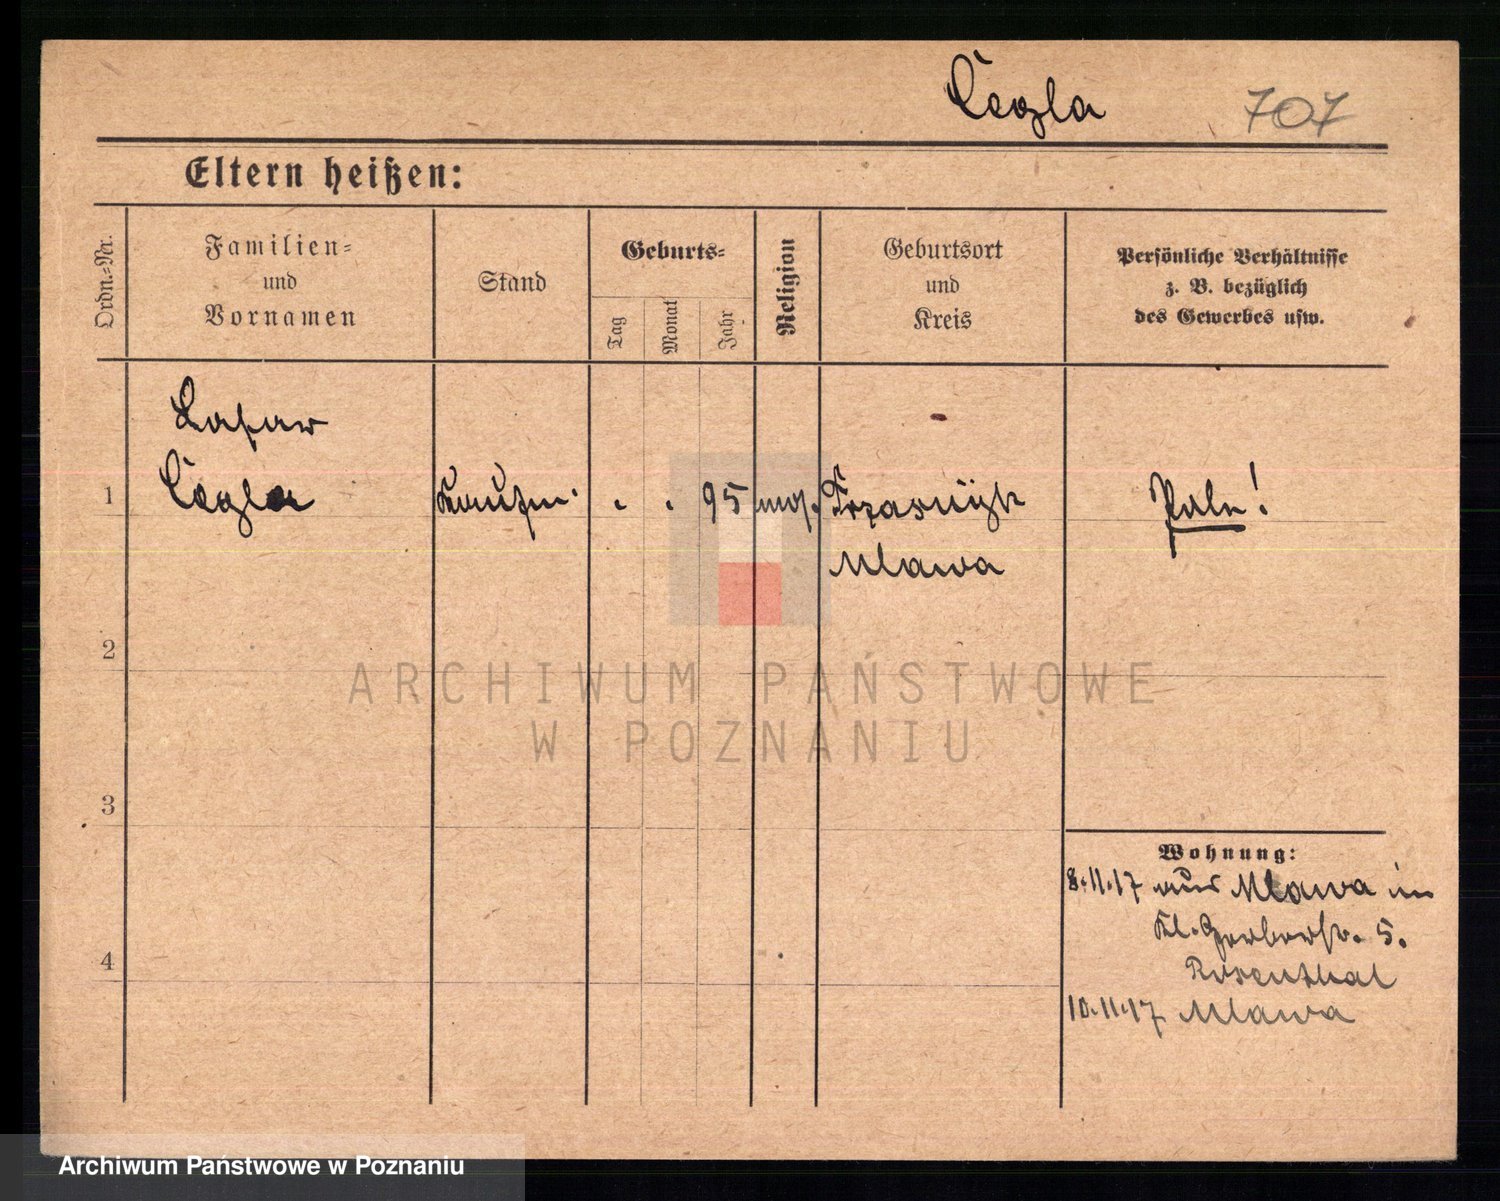 Cegla 707
Eltern heißen:
Ordn.=Nr.
Familien=
und
Vornamen
Stand
Geburts=
Tag
Monat
Jahr
Religion
Geburtsort
und
Kreis
Persönliche Verhältnisse
z. B. bezüglich
des Gewerbes usw.
Lasar
1 Cegla Kaufm. . . 95 mos. Pole!
Mlawa
2
3
4
Wohnung:
8.11.17 aus Mlawa in
Kl. Gerberstr. 5.
Rosenthal
10.11.17 Mlawa
ARCHIWUM PAŃSTWOWE
W POZNANIU
Archiwum Państwowe w Poznaniu